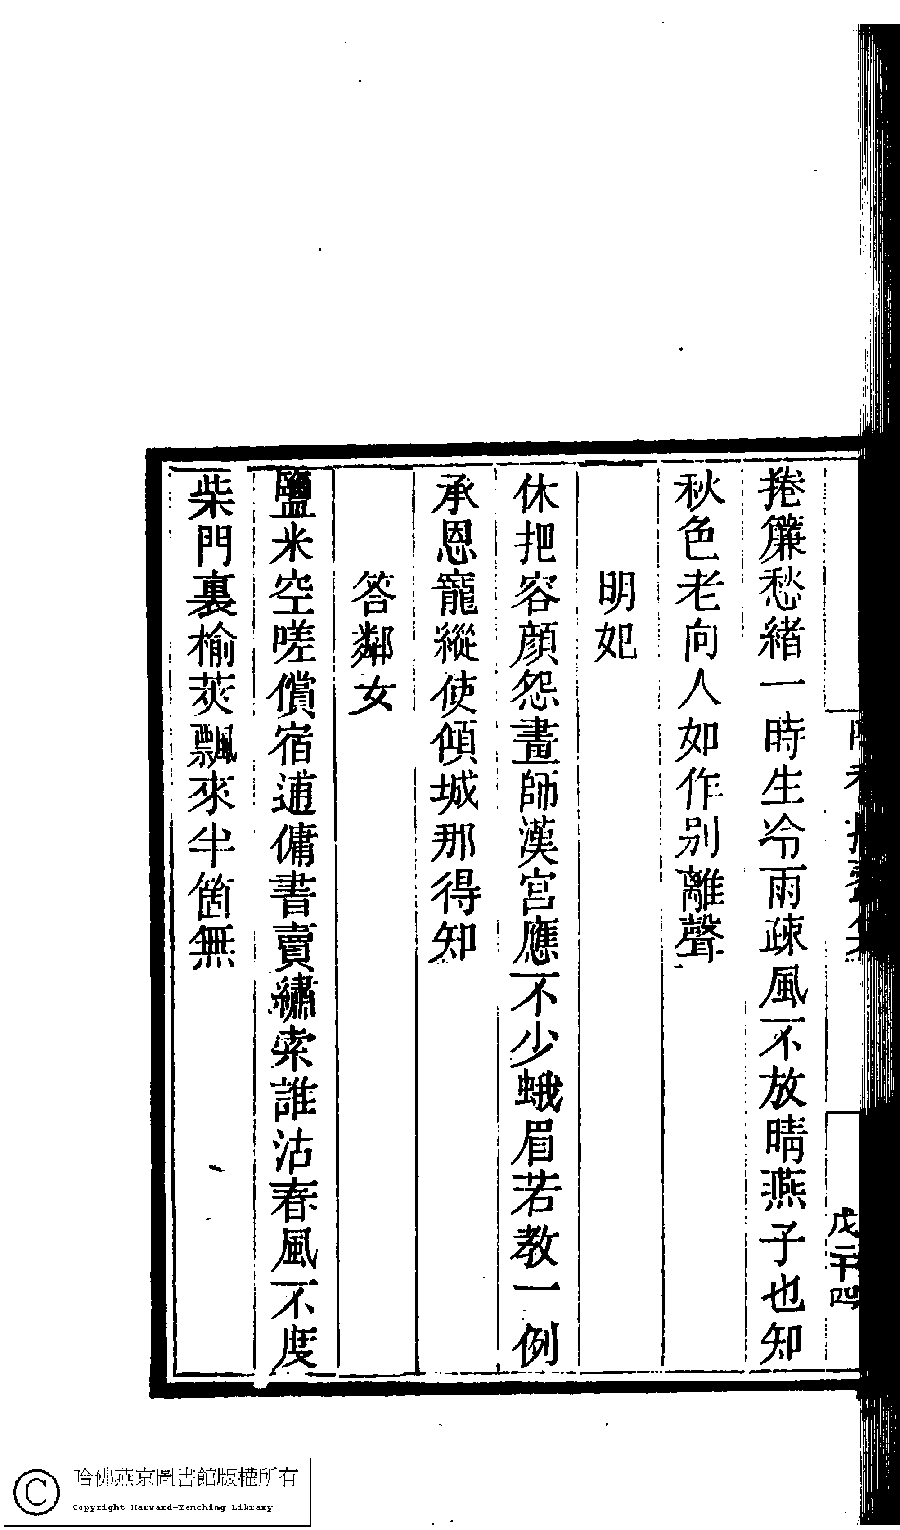 捲簾愁緒一時生冷雨疎風不放晴燕子也知
秋色老向人如作別離聲
明妃
休把容顔怨畫師漢宮應不少蛾眉若教一例
承恩寵縱使傾城那得知
答鄰女
鹽米空嗟償宿逋傭書賣繡索誰沽春風不度
柴門裏榆莢飄來半箇無
戊二十四
哈佛燕京圖書館版權所有
Copyright Harvard-Yenching Library